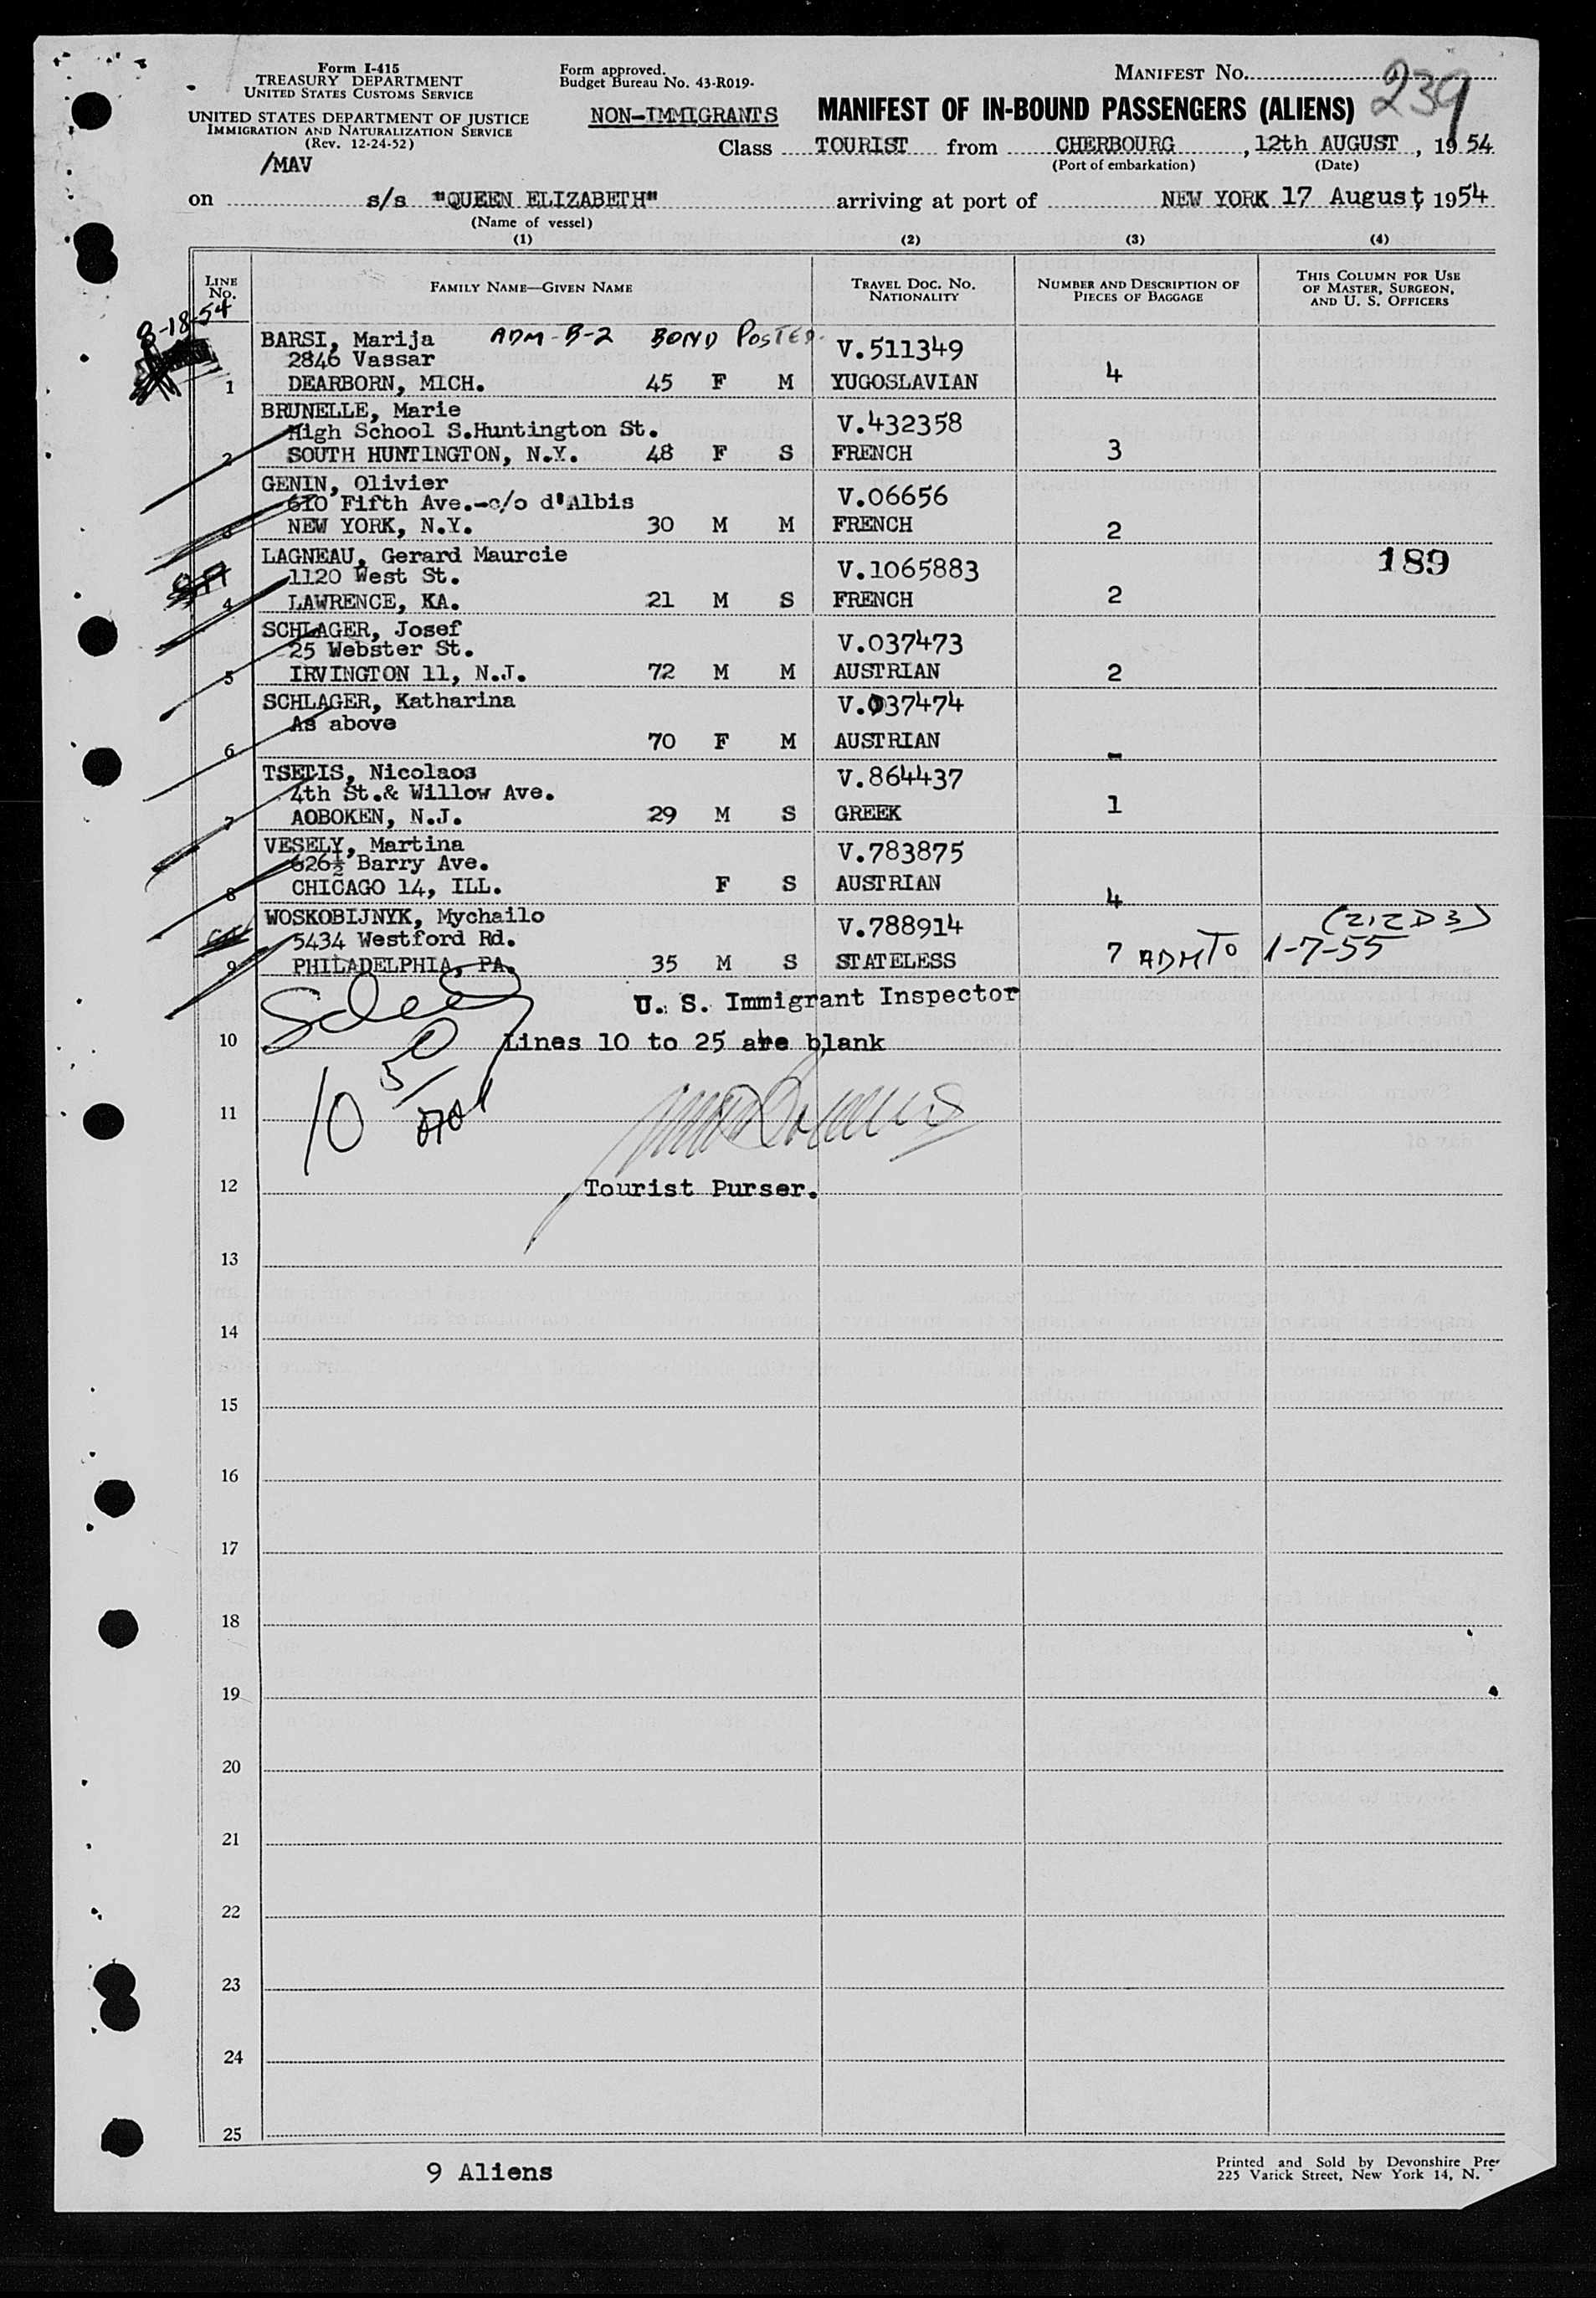 Form I-415
TREASURY DEPARTMENT
UNITED STATES CUSTOMS SERVICE
UNITED STATES DEPARTMENT OF JUSTICE
IMMIGRATION AND NATURALIZATION SERVICE
(Rev. 12-24-52)
/MAV
Form approved.
Budget Bureau No. 43-R019-
NON-IMMIGRANTS
MANIFEST NO. 239
MANIFEST OF IN-BOUND PASSENGERS (ALIENS)
Class TOURIST from CHERBOURG, 12th AUGUST, 1954
(Port of embarkation) (Date)
on s/s "QUEEN ELIZABETH" arriving at port of NEW YORK 17 August, 1954
(Name of vessel)
(1) (2) (3) (4)
LINE NO.
FAMILY NAME—GIVEN NAME
TRAVEL DOC. NO. NATIONALITY
NUMBER AND DESCRIPTION OF PIECES OF BAGGAGE
THIS COLUMN FOR USE OF MASTER, SURGEON, AND U. S. OFFICERS
8-18-54
BARSI, Marija ADM-B-2 BOND POSTED. V.511349
2846 Vassar
1 DEARBORN, MICH. 45 F M YUGOSLAVIAN 4
BRUNELLE, Marie V.432358
High School S.Huntington St.
2 SOUTH HUNTINGTON, N.Y. 48 F S FRENCH 3
GENIN, Olivier V.06656
610 Fifth Ave.-c/o d'Albis
3 NEW YORK, N.Y. 30 M M FRENCH 2
LAGNEAU, Gerard Maurcie V.1065883 189
1120 West St.
4 LAWRENCE, KA. 21 M S FRENCH 2
SCHLAGER, Josef V.037473
25 Webster St.
5 IRVINGTON 11, N.J. 72 M M AUSTRIAN 2
SCHLAGER, Katharina V.037474
As above
6 70 F M AUSTRIAN -
TSETIS, Nicolaos V.864437
4th St.& Willow Ave.
7 AOBOKEN, N.J. 29 M S GREEK 1
VESELY, Martina V.783875
626½ Barry Ave.
8 CHICAGO 14, ILL. F S AUSTRIAN 4
WOSKOBIJNYK, Mychailo V.788914 (212D3)
5434 Westford Rd.
9 PHILADELPHIA, PA. 35 M S STATELESS 7 ADM TO 1-7-55
U. S. Immigrant Inspector
10 Lines 10 to 25 are blank
10 50
11
12 Tourist Purser.
13
14
15
16
17
18
19
20
21
22
23
24
25
9 Aliens
Printed and Sold by Devonshire
225 Varick Street, New York 14, N.